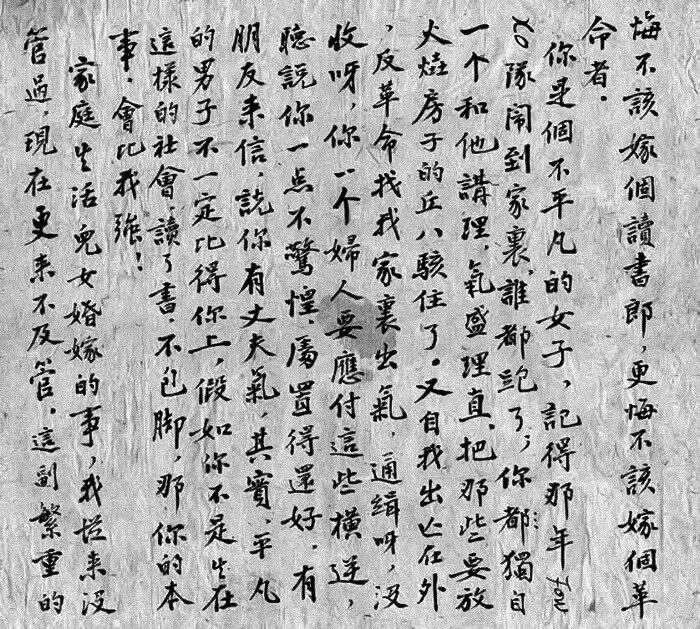 悔不該嫁個讀書郎,更悔不該嫁個革
命者.
你是個不平凡的女子,記得那年
隊鬧到家裏,誰都跑了;你都獨自
一个和他講理,氣盛理直,把那些要放
火燒房子的丘八駭住了。又自我出亡在外
,反革命找我家裏出氣,通緝呀,沒
收呀,你一个婦人要應付這些橫逆,
聽說你一点不驚惶,處置得還好.有
朋友来信,說你有丈夫氣,其實,平凡
的男子不一定比得你上,假如你不是生在
這樣的社會,讀了書,不包脚,那你的本
事.會比我強!
家庭生活兒女婚嫁的事,我從来沒
管過,現在更来不及管.這副繁重的